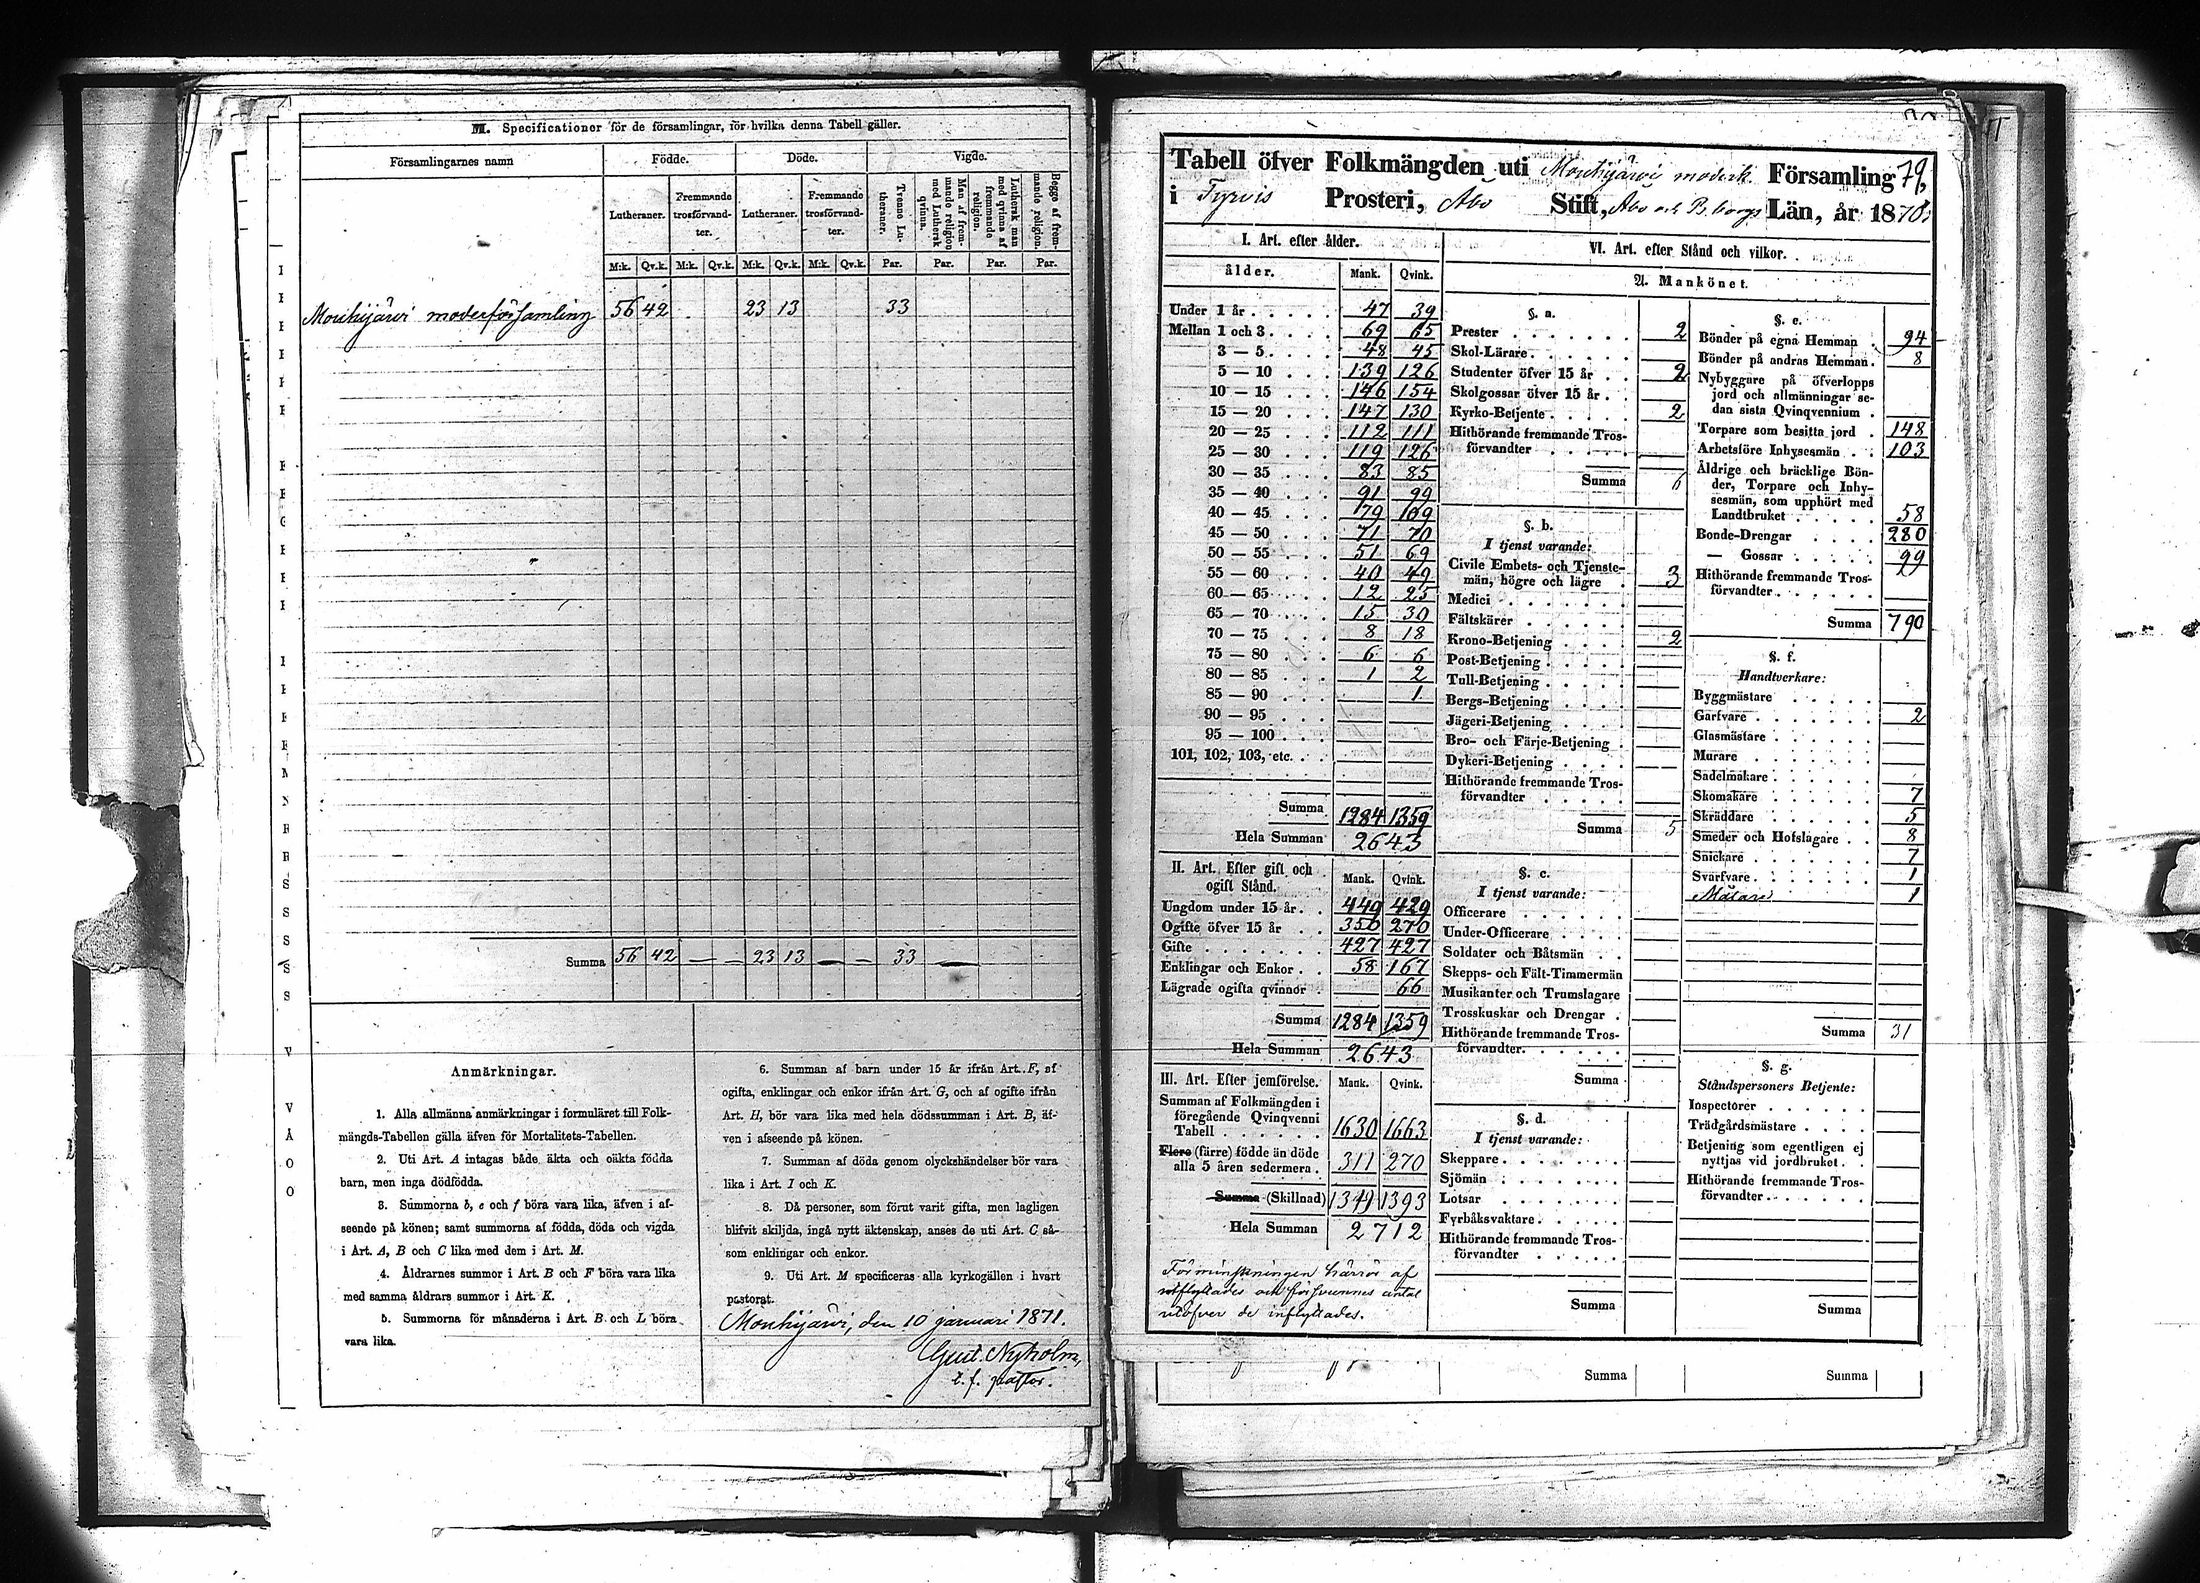 M. Specificationer för de församlingar, för hvilka denna Tabell gäller.
Församlingarnes namn
Födde.
Döde.
Vigde.
Lutheraner.
Fremmande trosförvandter.
Lutheraner.
Fremmande trosförvandter.
Tvenne Lutheraner.
Man af fremmande religion med Luthersk qvinna.
Luthersk man med qvinna af fremmande religion.
Begge af fremmande religion.
M:k. Qv.k. M:k. Qv.k. M:k. Qv.k. M:k. Qv.k. Par. Par. Par. Par.
Mouhijärvi moderförsamling 56 42 23 13 33
Summa 56 42 — — 23 13 — — 33 —
Anmärkningar.
1. Alla allmänna anmärkningar i formuläret till Folk-
mängds-Tabellen gälla äfven för Mortalitets-Tabellen.
2. Uti Art. A intagas både äkta och oäkta födda
barn, men inga dödfödda.
3. Summorna b, e och f böra vara lika, äfven i af-
seende på könen; samt summorna af födda, döda och vigda
i Art. A, B och C lika med dem i Art. M.
4. Åldrarnes summor i Art. B och F böra vara lika
med samma åldrars summor i Art. K.
5. Summorna för månaderna i Art. B och L böra
vara lika.
6. Summan af barn under 15 år ifrån Art. F, af
ogifta, enklingar och enkor ifrån Art. G, och af ogifte ifrån
Art. H, bör vara lika med hela dödssumman i Art. B, äf-
ven i afseende på könen.
7. Summan af döda genom olyckshändelser bör vara
lika i Art. I och K.
8. Då personer, som förut varit gifta, men lagligen
blifvit skiljda, ingå nytt äktenskap, anses de uti Art. C så-
som enklingar och enkor.
9. Uti Art. M specificeras alla kyrkogällen i hvart
pastorat.
Mouhijärvi, den 10 januari 1871.
Gust. Nyholm,
t. f. pastor.
Tabell öfver Folkmängden uti Mouhijärvi moderk. Församling 79,
i Tyrvis Prosteri, Åbo Stift, Åbo och B.borgs Län, år 1870.
I. Art. efter ålder.
ålder. Mank. Qvink.
Under 1 år 47 39
Mellan 1 och 3 69 65
3 — 5 48 45
5 — 10 139 126
10 — 15 146 154
15 — 20 147 130
20 — 25 112 111
25 — 30 119 126
30 — 35 83 85
35 — 40 91 99
40 — 45 79 109
45 — 50 71 70
50 — 55 51 69
55 — 60 40 49
60 — 65 12 25
65 — 70 15 30
70 — 75 8 18
75 — 80 6 6
80 — 85 1 2
85 — 90 1
90 — 95
95 — 100
101, 102, 103, etc.
Summa 1284 1359
Hela Summan 2643
II. Art. Efter gift och ogift Stånd. Mank. Qvink.
Ungdom under 15 år 449 429
Ogifte öfver 15 år 350 270
Gifte 427 427
Enklingar och Enkor 58 167
Lägrade ogifta qvinnor 66
Summa 1284 1359
Hela Summan 2643
III. Art. Efter jemförelse. Mank. Qvink.
Summan af Folkmängden i
föregående Qvinqvenni
Tabell 1630 1663
Flere (färre) födde än döde
alla 5 åren sedermera 311 270
Summa (Skillnad) 1319 1393
Hela Summan 2712
Förminskningen härrör af
utflyttades och försvunnes antal
utöfver de inflyttades.
VI. Art. efter Stånd och vilkor.
A. Mankönet.
§. a.
Prester 2
Skol-Lärare
Studenter öfver 15 år 2
Skolgossar öfver 15 år
Kyrko-Betjente 2
Hithörande fremmande Tros-
förvandter
Summa 6
§. b.
I tjenst varande:
Civile Embets- och Tjenste-
män, högre och lägre 3
Medici
Fältskärer
Krono-Betjening 2
Post-Betjening
Tull-Betjening
Bergs-Betjening
Jägeri-Betjening
Bro- och Färje-Betjening
Dykeri-Betjening
Hithörande fremmande Tros-
förvandter
Summa 5
§. c.
I tjenst varande:
Officerare
Under-Officerare
Soldater och Båtsmän
Skepps- och Fält-Timmermän
Musikanter och Trumslagare
Trosskuskar och Drengar
Hithörande fremmande Tros-
förvandter.
Summa
§. d.
I tjenst varande:
Skeppare
Sjömän
Lotsar
Fyrbåksvaktare
Hithörande fremmande Tros-
förvandter
Summa
§. e.
Bönder på egna Hemman 94
Bönder på andras Hemman 8
Nybyggare på öfverlopps
jord och allmänningar se-
dan sista Qvinqvennium
Torpare som besitta jord 148
Arbetsföre Inhysesmän 103
Åldrige och bräcklige Bön-
der, Torpare och Inhy-
sesmän, som upphört med
Landtbruket 58
Bonde-Drengar 280
— Gossar 99
Hithörande fremmande Tros-
förvandter
Summa 790
§. f.
Handtverkare:
Byggmästare
Garfvare 2
Glasmästare
Murare
Sadelmakare
Skomakare 7
Skräddare 5
Smeder och Hofslagare 8
Snickare 7
Svarfvare 1
Målare 1
Summa 31
§. g.
Ståndspersoners Betjente:
Inspectorer
Trädgårdsmästare
Betjening som egentligen ej
nyttjas vid jordbruket
Hithörande fremmande Tros-
förvandter
Summa
Summa
Summa